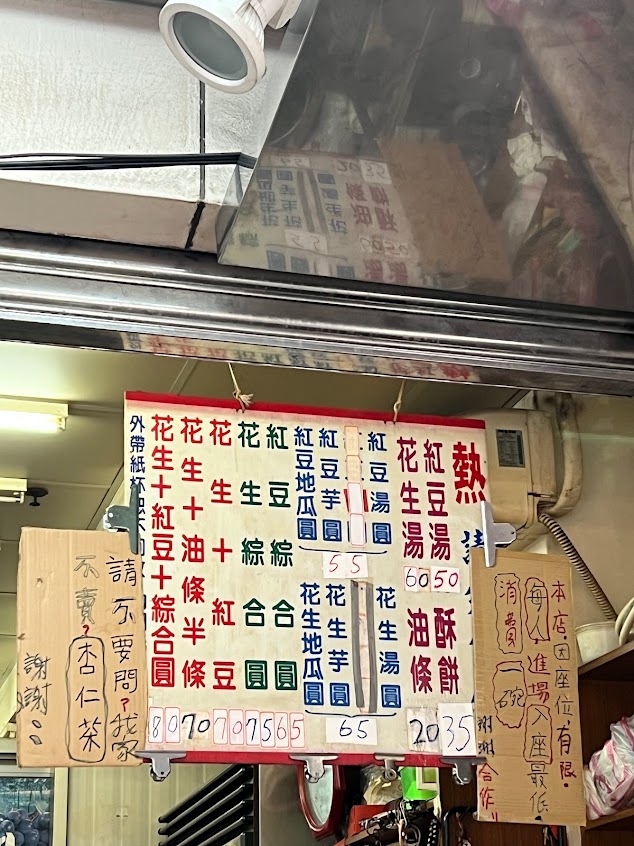 本店因座位有限.
每人進場入座最低
消費一碗
謝謝合作!!
熱
紅豆湯 50
花生湯 60
酥餅 35
油條 20
紅豆湯圓
紅豆芋圓
紅豆地瓜圓
55
花生湯圓
花生芋圓
花生地瓜圓
65
紅豆綜合圓 65
花生綜合圓 75
花生+紅豆 70
花生+油條半條 70
花生+紅豆+綜合圓 80
外帶紙杯
請不要問?我家
不賣?杏仁茶
謝謝